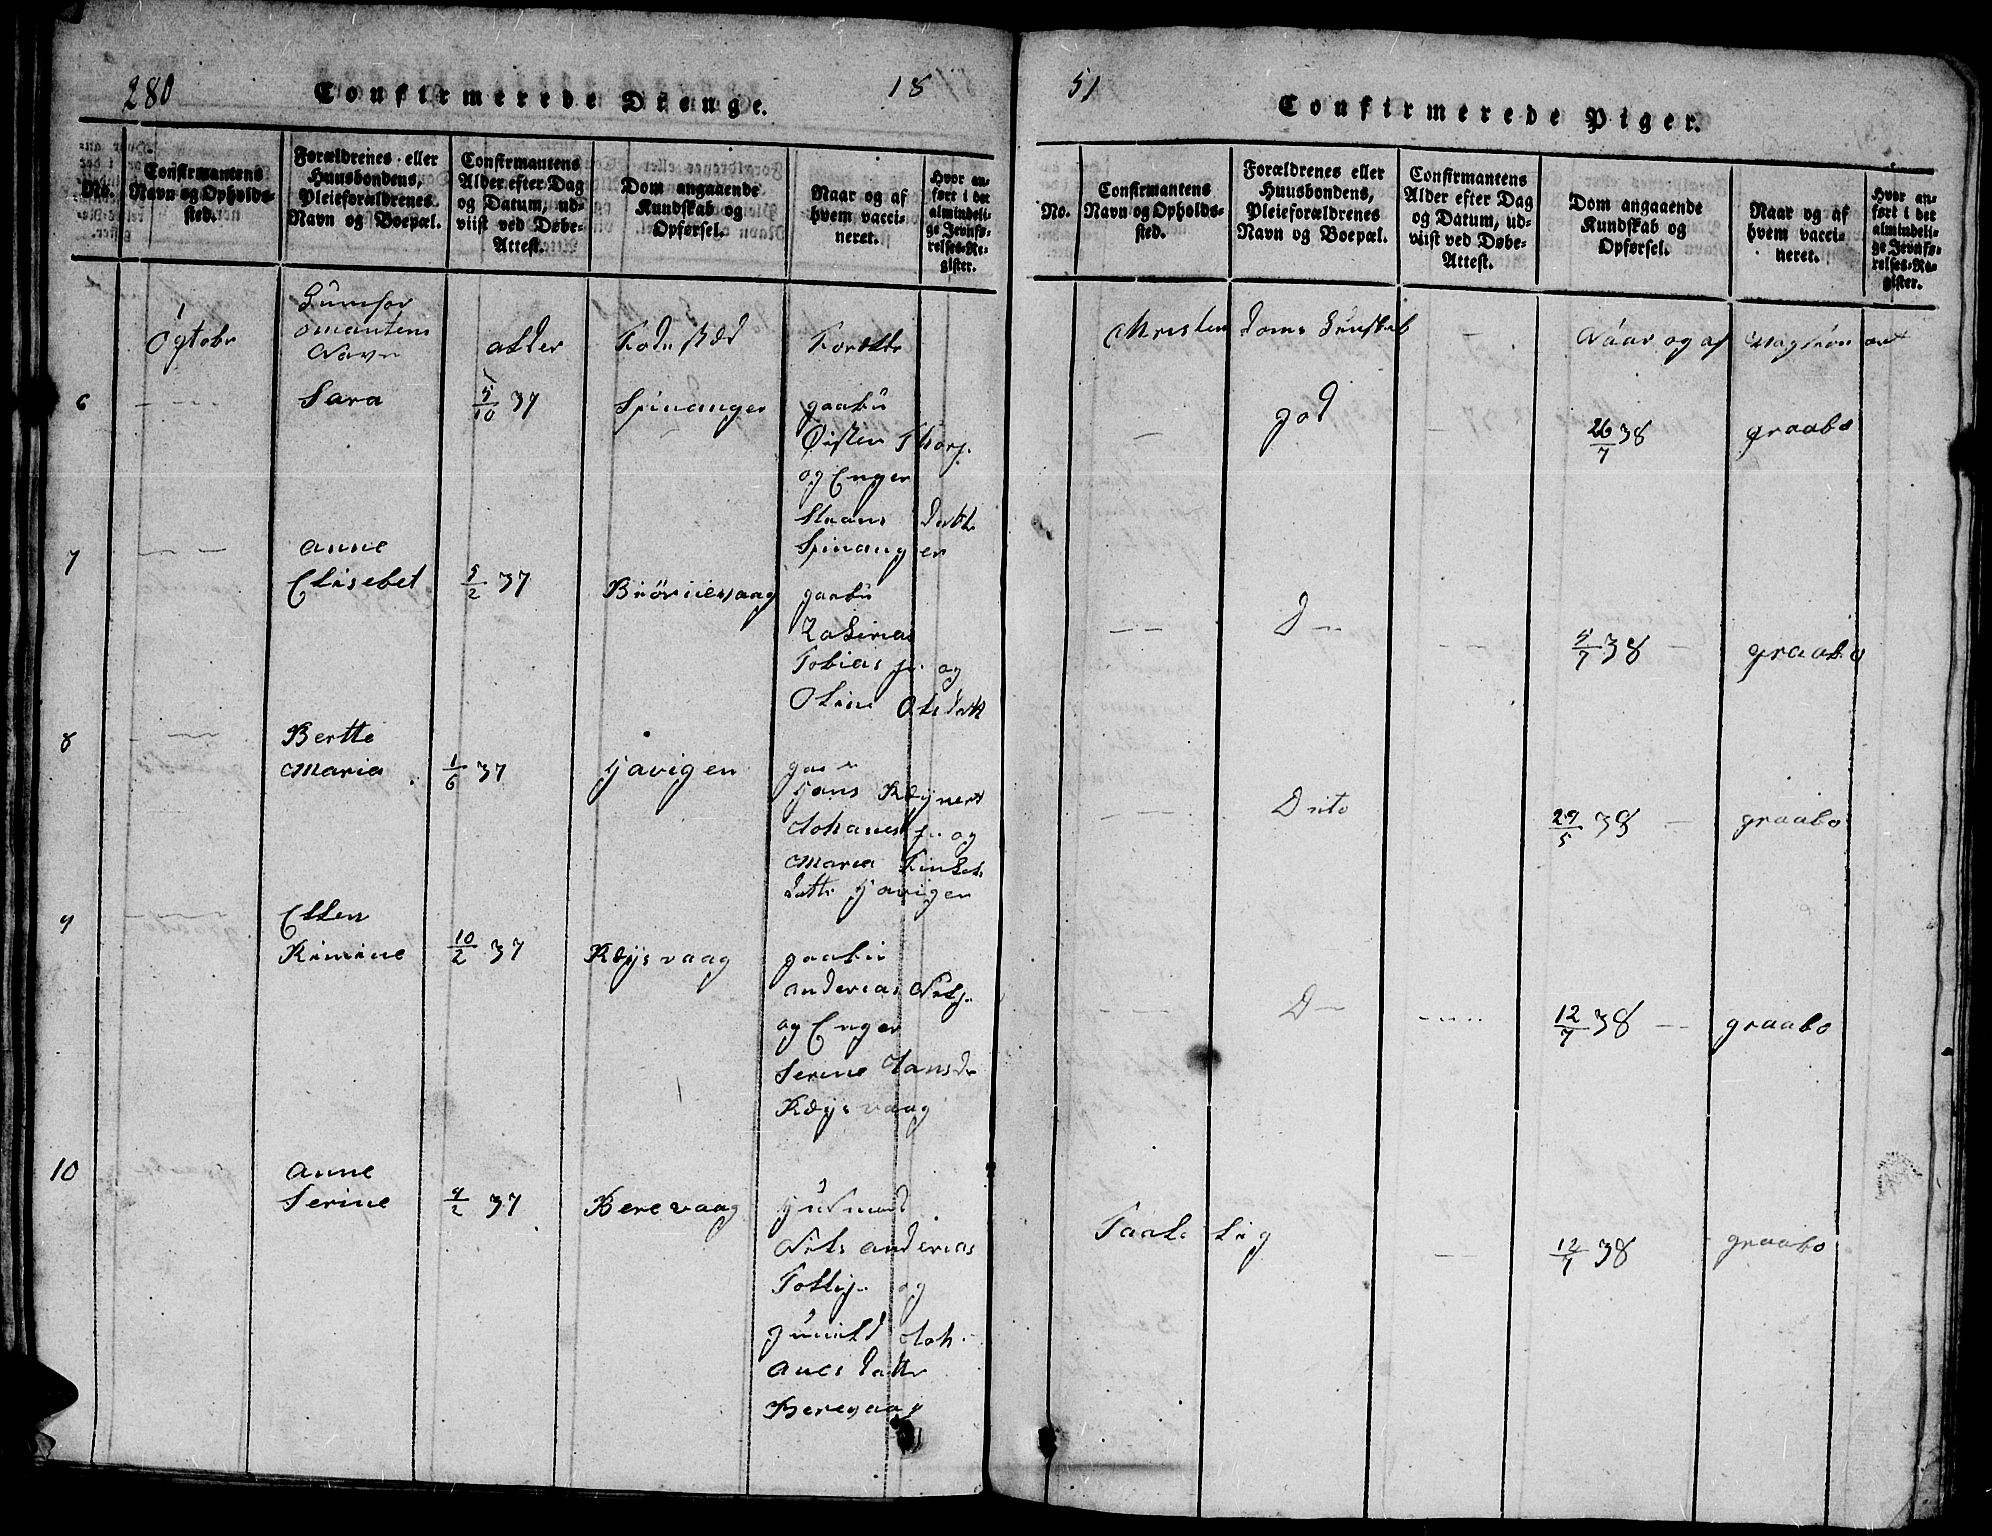 280
Confirmerede Drenge.
18
No.
Confirmantens
Navn og Opholds-
sted.
Forældrenes eller
Huusbondens,
Pleieforældrenes
Navn og Boepæl.
Confirmantens
Alder efter Dag
og Datum, ud-
viist ved Døbe-
Attest.
Dom angaaende
Kundskab og
Opførsel.
Naar og af
hvem vacci-
neret.
Hvor an-
ført i det
almindeli-
ge Jevnfø-
relses-Re-
gister.
Navn
alder
6
Sara
5/10 37
Spinanger
gaabr
Østen Thorj.
og Enger
Spinanger
7
anne
Elisebet
5/2 37
Biörnevaag
gaabr
Tobias s. og
Oline Olsdatt
8
Bertte
Maria
1/6 37
Havigen
Hans Reynert
Johanes s. og
Maria
Datte Havigen
9
Ellen
Rimine
10/2 37
Reysvaag
gaabr
anderias Nels.
og Enger
Serine Jansd
Reysvaag
10
anne
Serine
4/2 37
Berevaag
Husmand
Nils anderias
og
Gunild Joh-
anes datter
Berevaag
51
Confirmerede Piger.
No.
Confirmantens
Navn og Opholds-
sted.
Forældrenes eller
Huusbondens,
Pleieforældrenes
Navn og Boepæl.
Confirmantens
Alder efter Dag
og Datum, ud-
viist ved Døbe-
Attest.
Dom angaaende
Kundskab og
Opførsel.
Naar og af
hvem vacci-
neret.
Hvor an-
ført i det
almindeli-
ge Jevnfø-
relses-Re-
gister.
Christendoms Kunskab
Naar og af
god
26/7 38
graabo
D —
4/7 38
graabo
Dito
29/5 38
graabo
D —
12/7 38
graabo
Taalelig
12/7 38
graabo